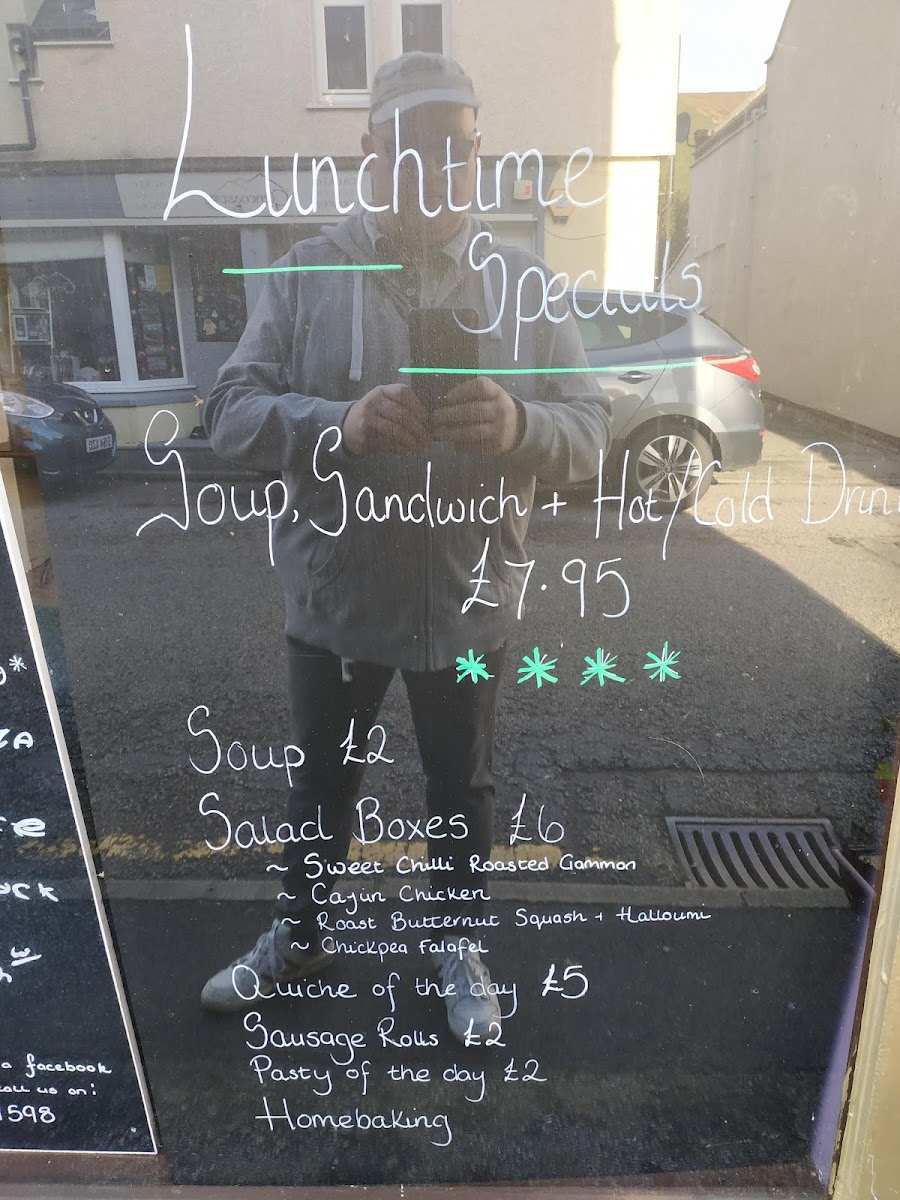 Lunchtime
Specials
Soup, Sandwich + Hot/Cold Drin
£7.95
* * * *
Soup £2
Salad Boxes £6
~ Sweet Chilli Roasted Gammon
~ Cajun Chicken
~ Roast Butternut Squash + Halloumi
~ Chickpea Falafel
Quiche of the day £5
Sausage Rolls £2
Pasty of the day £2
Homebaking
a facebook
call us on:
1598